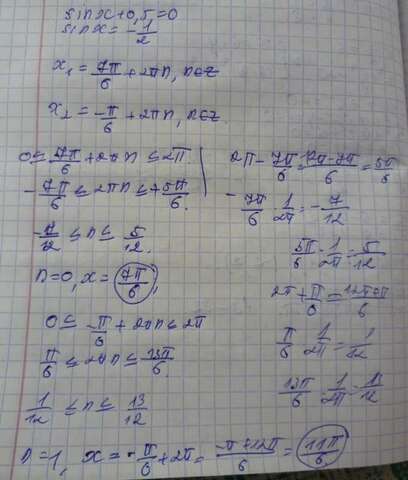 sinx+0,5=0
sinx=-1/2
x₁=7π/6+2πn, n∈Z
x₂=-π/6+2πn, n∈Z
0≤7π/6+2πn≤2π
-7π/6≤2πn≤+5π/6.
-7/12≤n≤5/12.
n=0, x=7π/6.
0≤-π/6+2πn≤2π
π/6≤2πn≤13π/6.
1/12≤n≤13/12
n=1, x=-π/6+2π=-π+12π/6=11π/6
2π-7π/6=12π-7π/6=5π/6
-7π/6 1/2π=-7/12
5π/6 1/2π=5/12
2π+π/6=
π/6 1/2π=1/12
13π/6 1/2π=